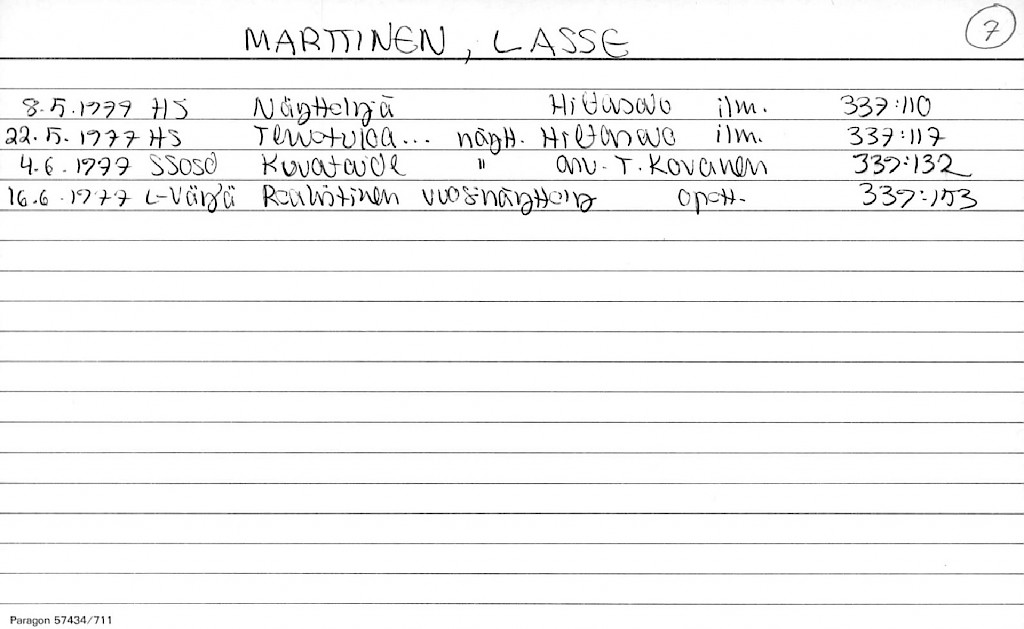 MARTTINEN, LASSE 7
8.5.1977 HS Näyttelyjä Hiltasalo ilm. 337:110
22.5.1977 HS Tervetuloa... näytt. Hiltasalo ilm. 337:117
4.6.1977 SSosd Kuvataide " arv. T. Kovanen 337:132
16.6.1977 L-Väylä Realistinen vuosinäyttely 337:153
Paragon 57434/711